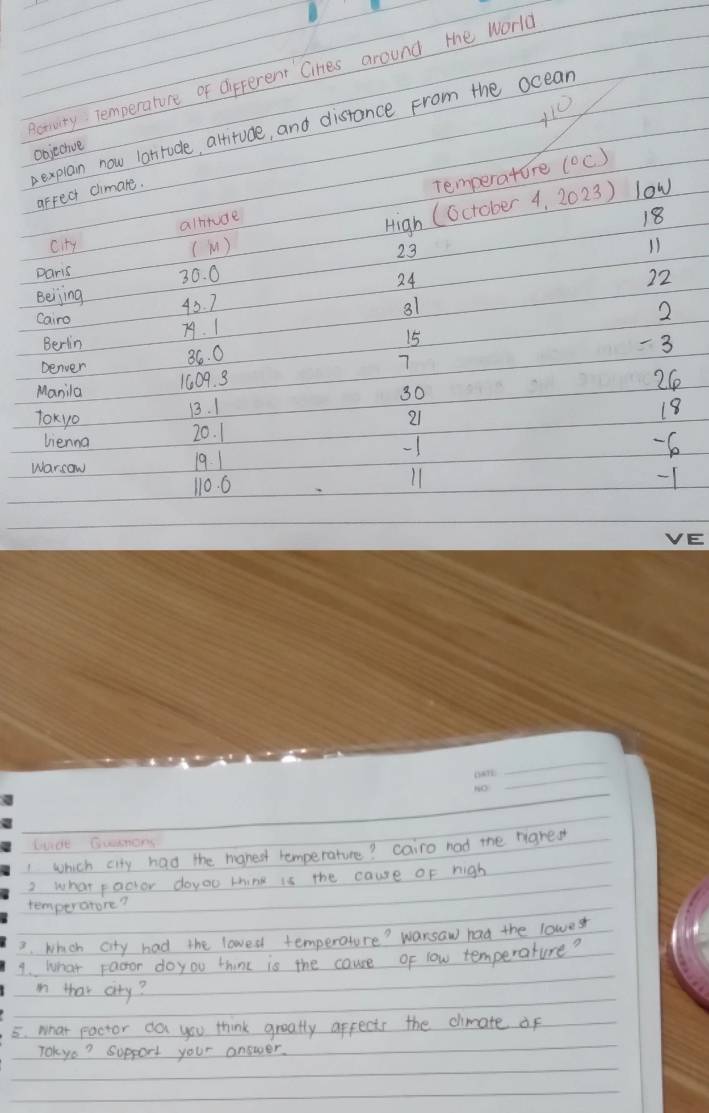 Activity: Temperature of different Cities around the World.
Objective
explain how latitude, altitude, and distance from the ocean
affect climate.
+10
Temperature (°C)
City altitude High (October 4, 2023) low
(M)
Paris 30.0 23 18
Beijing 43.7 24 11
Cairo 74.1 31 22
Berlin 36.0 15 2
Denver 1609.3 7 -3
Manila 13.1 30 26
Tokyo 20.1 21 18
Vienna 19.1 -1 -6
Warsaw 110.0 11 -1
VE
DATE:
NO:
Guide Questions
1. which city had the highest temperature? Cairo had the highest
2 what factor do you think is the cause of high
temperature?
3. Which city had the lowest temperature? Warsaw had the lowest
4. What factor do you think is the cause of low temperature?
in that city?
5. What factor do you think greatly affects the climate of
Tokyo? Support your answer.